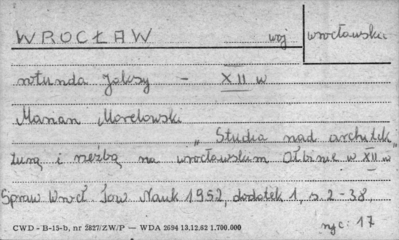 WROCŁAW woj wrocławskie
rotunda Jaksy - XII w
Marian Morelowski
"Studia nad architek"
turą i rzeźbą na wrocławskim Ołbinie w XII w
Spraw Wrocł. Tow Nauk 1952, dodatek 1, s. 2-38,
CWD - B-15-b, nr 2827/ZW/P — WDA 2694 13.12.62 1.700.000
ryc: 17